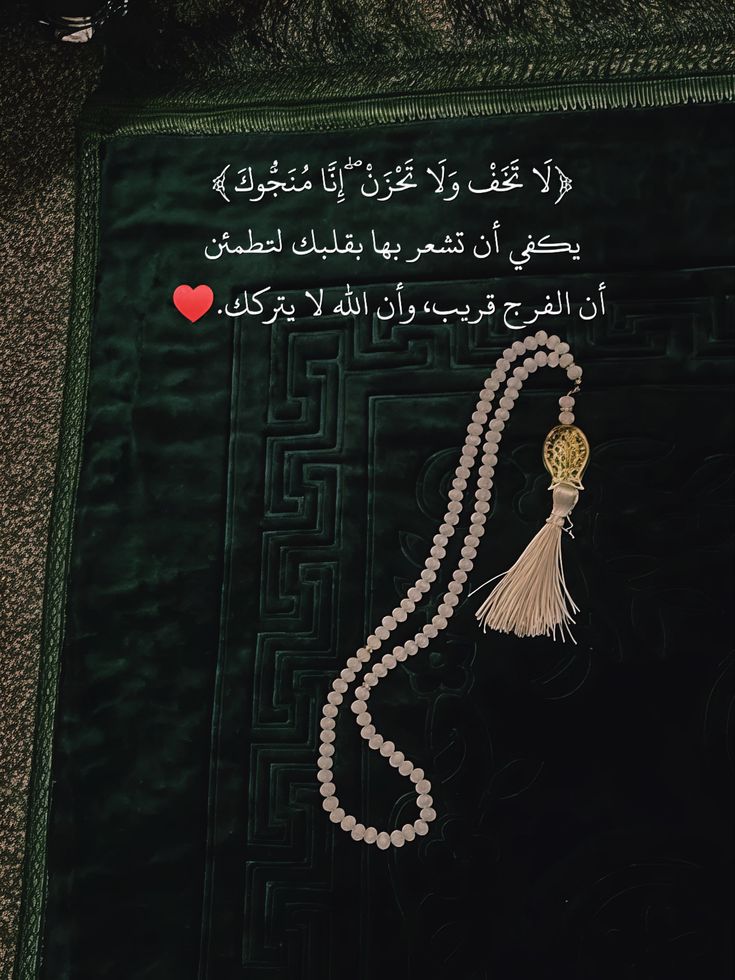 ﴿لَا تَخَفْ وَلَا تَحْزَنْ ۖ إِنَّا مُنَجُّوكَ﴾
يكفي أن تشعر بها بقلبك لتطمئن
أن الفرج قريب، وأن الله لا يتركك.♥️